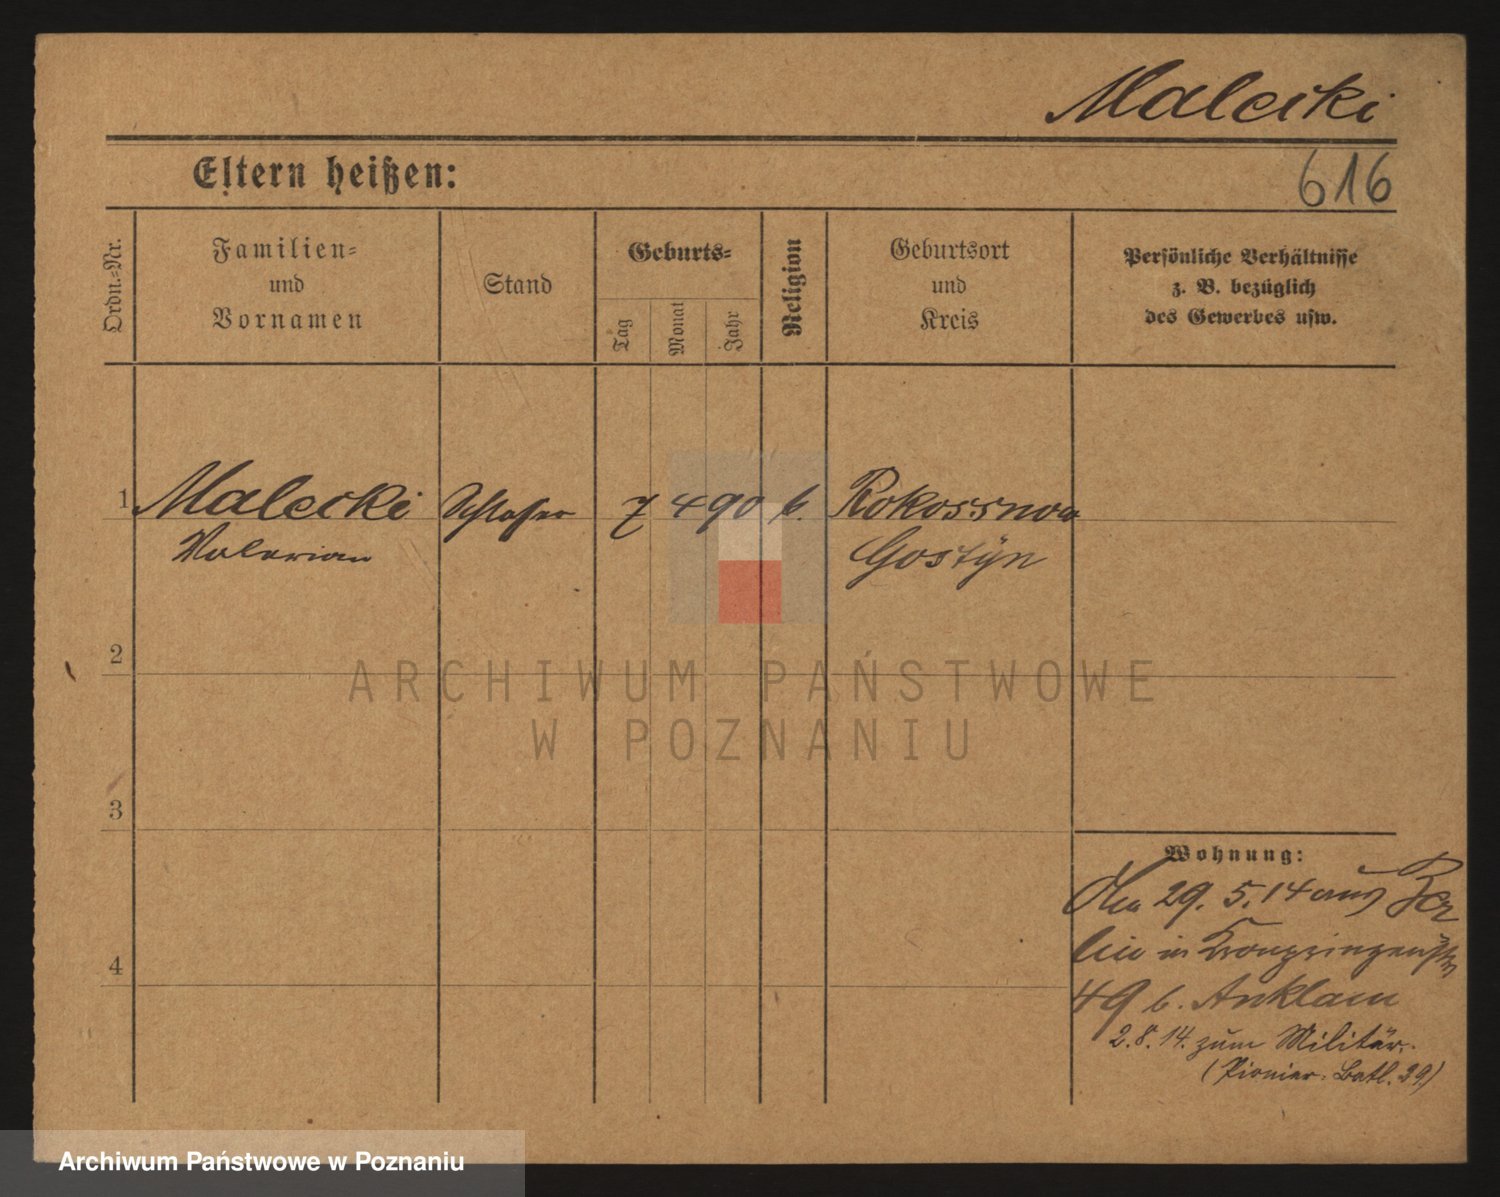 Malecki
Eltern heißen:
616
Ordn.-Nr.
Familien-
und
Vornamen
Stand
Geburts-
Tag
Monat
Jahr
Religion
Geburtsort
und
Kreis
Persönliche Verhältnisse
z. B. bezüglich
des Gewerbes usw.
1 Malecki Schlosser 7 4 90 k. Rokossowo
Valerian Gostÿn
2
3
4
ARCHIWUM PAŃSTWOWE
W POZNANIU
Wohnung:
29. 5. 14 aus Ber
lin in Kronprinzenstr
49 b. Anklam
2.8.14. zum Militär.
(Pionier. Batl. 29)
Archiwum Państwowe w Poznaniu